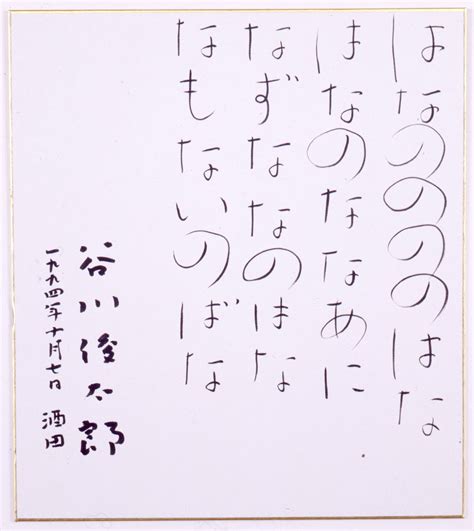 はなののののはな
はなのななあに
なずななのはな
なもないのばな
谷川俊太郎
一九九四年十月七日 酒田